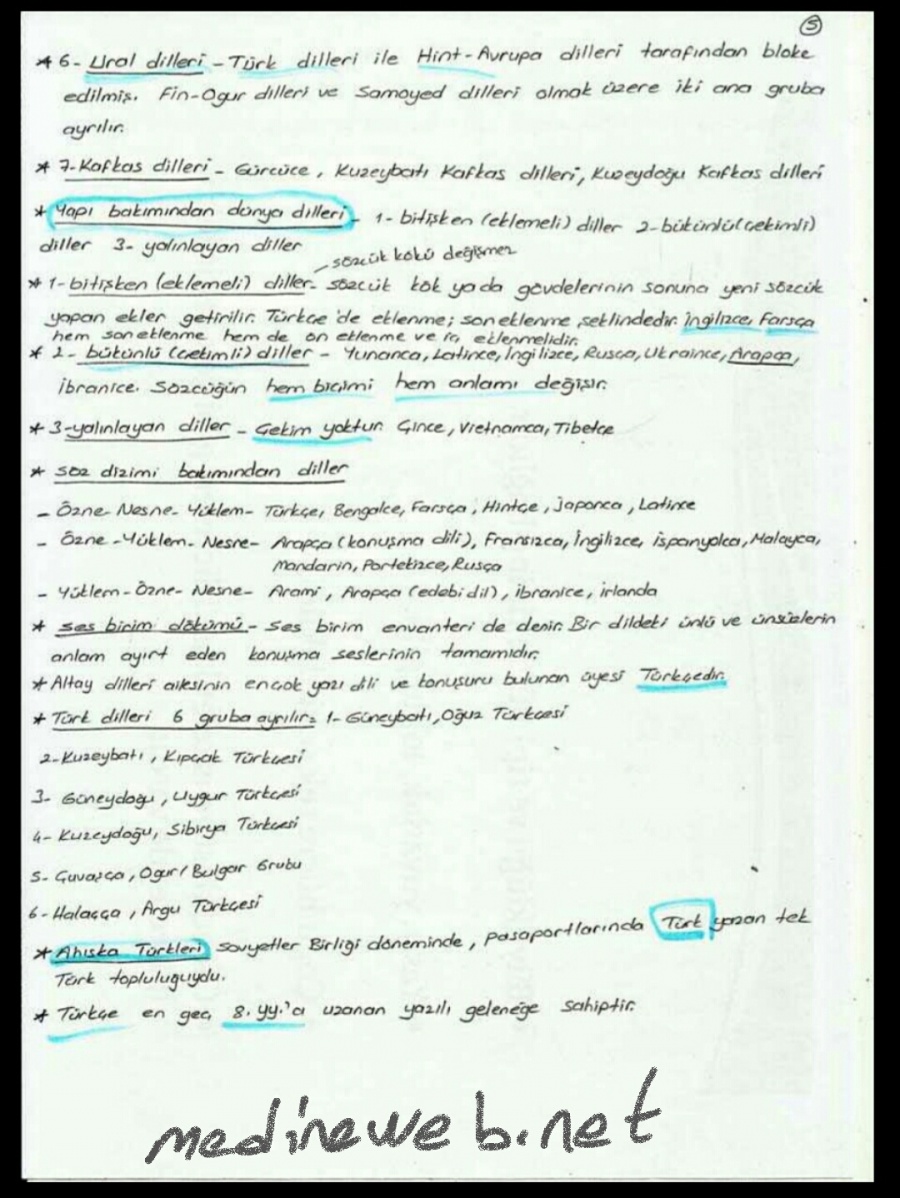 5
* 6- Ural dilleri - Türk dilleri ile Hint-Avrupa dilleri tarafından bloke
edilmiş. Fin-Ogur dilleri ve Samoyed dilleri olmak üzere iki ana gruba
ayrılır.
* 7-Kafkas dilleri - Gürcüce, Kuzeybatı Kafkas dilleri, Kuzeydoğu Kafkas dilleri
* Yapı bakımından dünya dilleri - 1- bitişken (eklemeli) diller 2-bükünlü (çekimli)
diller 3- yalınlayan diller
sözcük kökü değişmez
* 1-bitişken (eklemeli) diller- sözcük kök ya da gövdelerinin sonuna yeni sözcük
yapan ekler getirilir. Türkçe'de eklenme; son eklenme şeklindedir. İngilizce, Farsça
hem son eklenme hem de ön eklenme ve iç eklenmelidir.
* 2- bükünlü (çekimli) diller - Yunanca, Latince, İngilizce, Rusça, Ukraince, Arapça,
İbranice. Sözcüğün hem biçimi hem anlamı değişir.
* 3-yalınlayan diller - Çekim yoktur. Çince, Vietnamca, Tibetçe
* söz dizimi bakımından diller
- Özne-Nesne-Yüklem- Türkçe, Bengalce, Farsça, Hintçe, Japonca, Latince
- Özne-Yüklem-Nesne- Arapça (konuşma dili), Fransızca, İngilizce, İspanyolca, Malayca,
Mandarin, Portekizce, Rusça
- Yüklem-Özne-Nesne- Arami, Arapça (edebi dil), İbranice, İrlanda
* ses birim dökümü - Ses birim envanteri de denir. Bir dildeki ünlü ve ünsüzlerin
anlam ayırt eden konuşma seslerinin tamamıdır.
* Altay dilleri ailesinin en çok yazı dili ve konuşuru bulunan üyesi Türkçedir.
* Türk dilleri 6 gruba ayrılır: 1- Güneybatı, Oğuz Türkçesi
2-Kuzeybatı, Kıpçak Türkçesi
3- Güneydoğu, Uygur Türkçesi
4- Kuzeydoğu, Sibirya Türkçesi
5- Çuvaşça, Ogur/Bulgar Grubu
6-Halaçça, Argu Türkçesi
* Ahıska Türkleri Sovyetler Birliği döneminde, pasaportlarında Türk yazan tek
Türk topluluguydu.
* Türkçe en geç 8. yy.'a uzanan yazılı geleneğe sahiptir.
medineweb.net